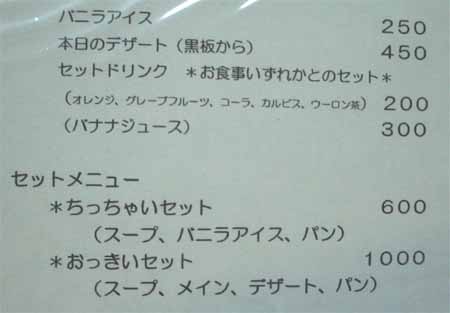 バニラアイス 250
本日のデザート（黒板から） 450
セットドリンク ＊お食事いずれかとのセット＊
（オレンジ、グレープフルーツ、コーラ、カルピス、ウーロン茶） 200
（バナナジュース） 300
セットメニュー
＊ちっちゃいセット 600
（スープ、バニラアイス、パン）
＊おっきいセット 1000
（スープ、メイン、デザート、パン）